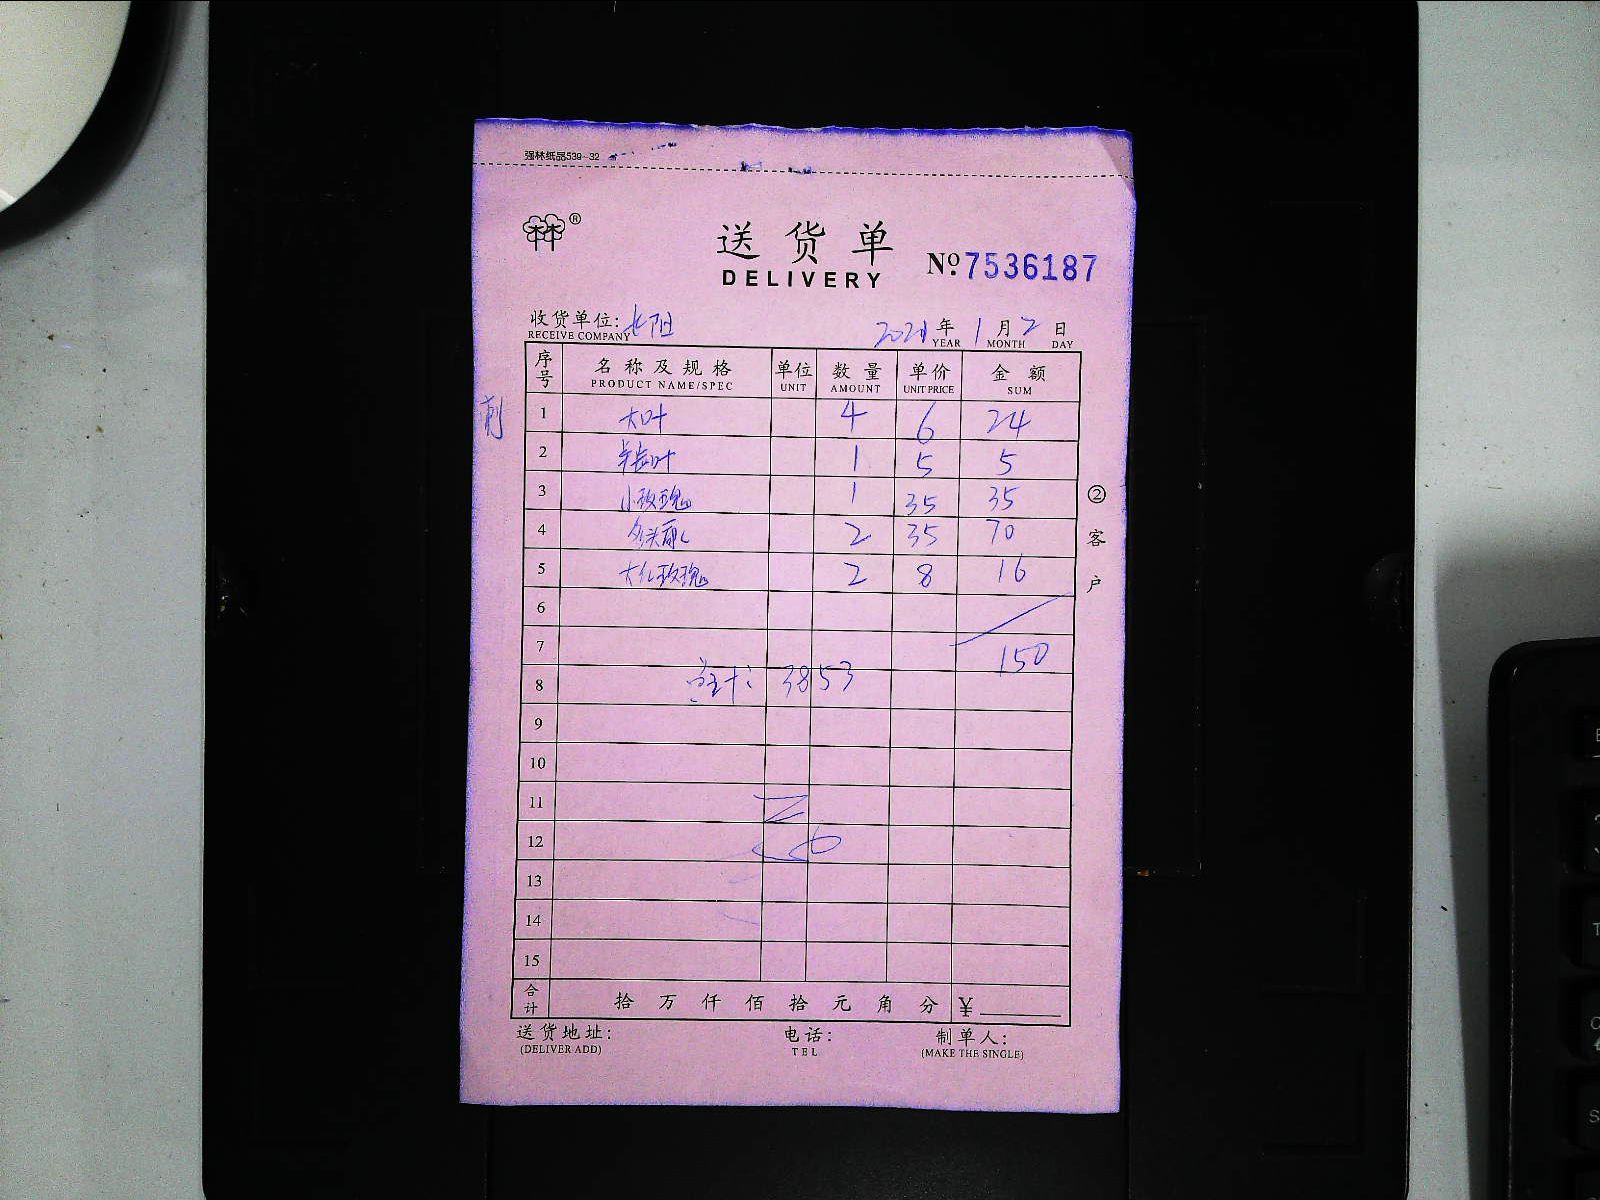 强林纸品539-32
林®
送货单
DELIVERY
№ 7536187
收货单位: 长阳
RECEIVE COMPANY
2021 年 1 月 2 日
YEAR MONTH DAY
序号 名称及规格 单位 数量 单价 金额
PRODUCT NAME/SPEC UNIT AMOUNT UNIT PRICE SUM
1 大叶 4 6 24
2 叶 1 5 5
3 小玫瑰 1 35 35
4 多头 2 35 70
5 大红玫瑰 2 8 16
6
7 150
8 总计: 3853
9
10
11
12
13
14
15
合计 拾 万 仟 佰 拾 元 角 分 ¥
②客户
送货地址: 电话: 制单人:
(DELIVER ADD) TEL (MAKE THE SINGLE)